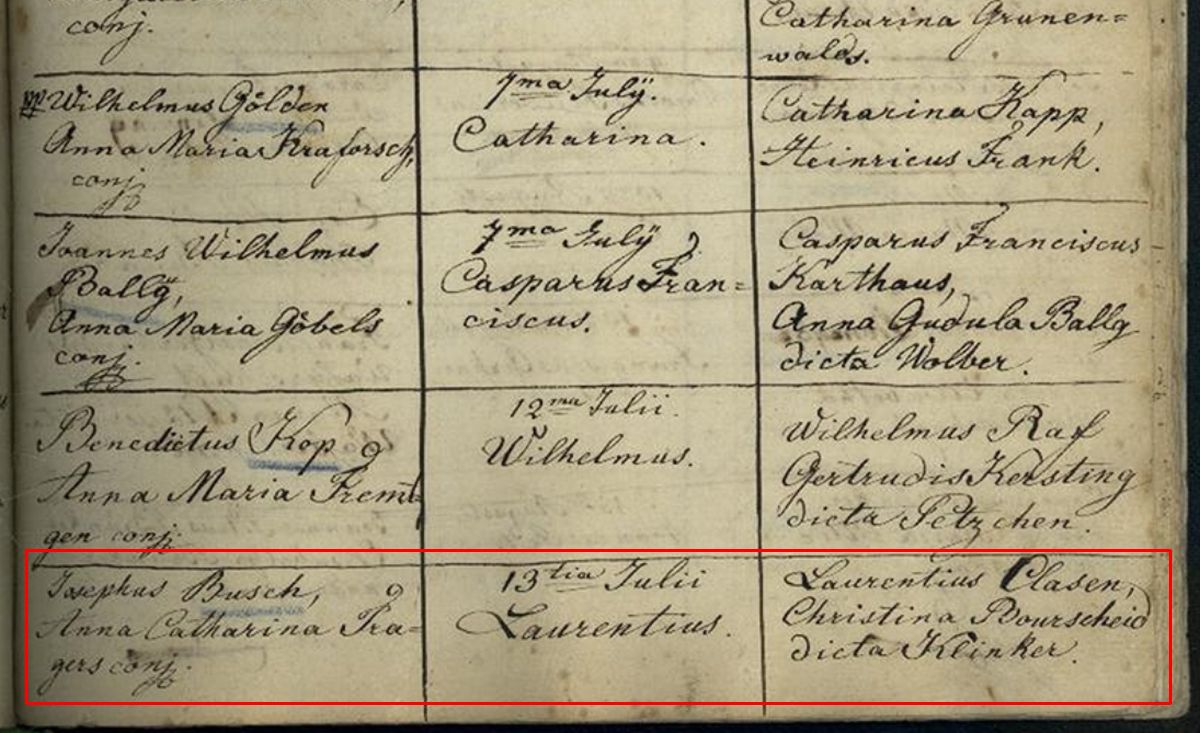 conj.
Catharina Grunen=
walds.
Wilhelmus Gölden
Anna Maria Kraforsch,
conj.
7ma Julÿ.
Catharina.
Catharina Kapp,
Heinricus Frank.
Joannes Wilhelmus
Ballÿ,
Anna Maria Göbels
conj.
7ma Julÿ
Casparus Fran=
ciscus.
Casparus Franciscus
Karthaus,
Anna Gudula Ballÿ
dicta Wolber.
Benedictus Kop
Anna Maria Fremt
gen conj.
12ma Julii.
Wilhelmus.
Wilhelmus Raf
Gertrudis Kersting
dicta Petzchen.
Josephus Busch,
Anna Catharina Tra=
gers conj.
13tia Julii
Laurentius.
Laurentius Clasen,
Christina Bourscheid
dicta Klinker.